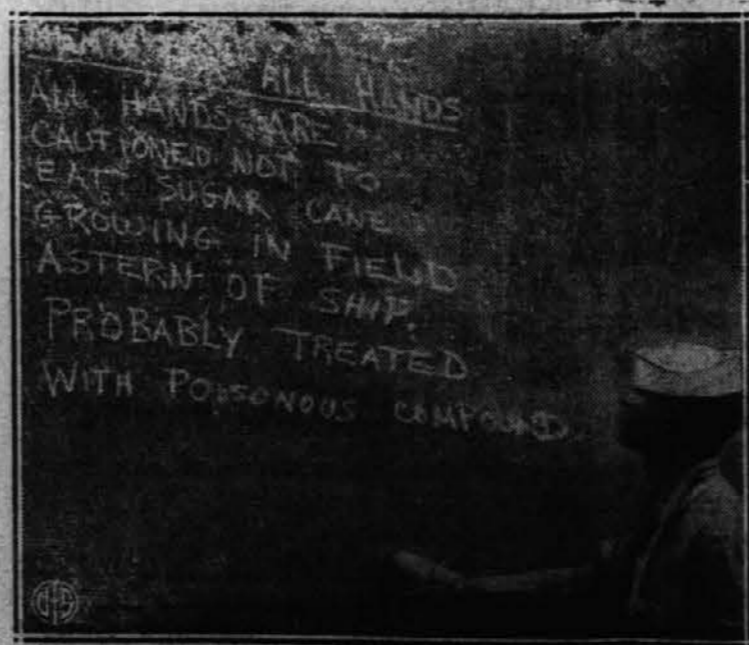 ALL HANDS
ALL HANDS ARE
CAUTIONED NOT TO
EAT SUGAR CANE
GROWING IN FIELD
ASTERN OF SHIP.
PROBABLY TREATED
WITH POISONOUS COMPOUND.